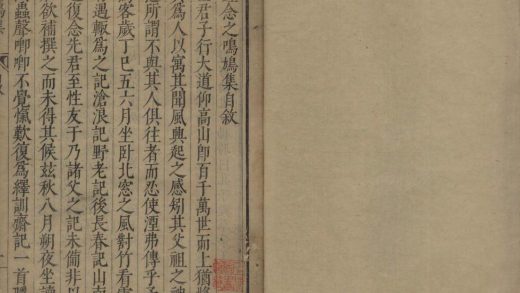 念之鳴鳩集自敘
君子行大道仰高山卽百千萬世而上猶將
爲人以寓其聞風興起之感矧其父祖之神
道所謂不與其人俱往者而忍使湮弗傳乎予
客歲丁巳五六月坐卧北窓之風對竹看雲
遇輙爲之記滄浪記野老記後長春記山南
復念先君至性友于乃諸父之記未備非以
欲補撰之而未得其候玆秋八月朔夜坐讀
蟲聲唧唧不覺愾歎復爲繹訓齋記一首